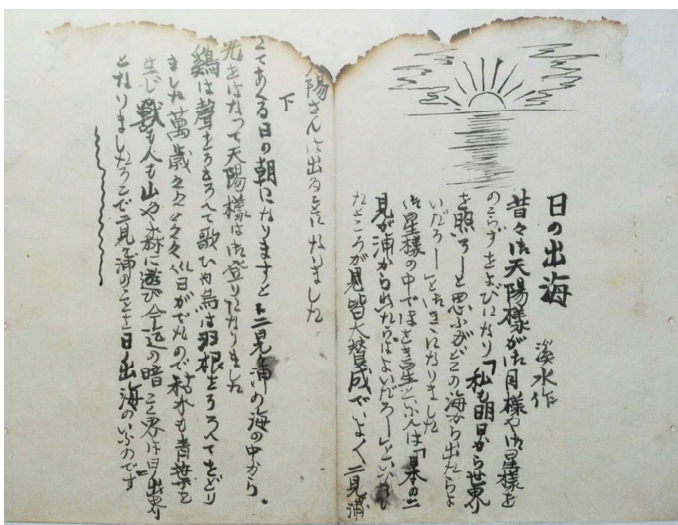 日の出海
溪水作
昔々お天陽様がお月様やお星様を
のこらずをよびになり「私も明日から世界
を照ろーと思ふがどこの海から出たらよ
いだろー」とおききになりました
お星様の中でほをき星といふんは「日本の二
見が浦から出たらばよいだろー」といふ
たところが見皆大賛成でいよく二見浦
太陽さんは出ることになりました
下
さてあくる日の朝になりますと二見ヶ浦の海の中から。
光をはなつて天陽様はお登りになりました
鷄は聲をそろへて歌ひ烏は羽根をそろへてをどり
ました萬歳々々々々々日がでたので私木も青葉を
生び獸も人も山や森に遊び今迄の暗い世界は日ノ出界
となりましたそこで二見ヶ浦のことを日ノ出海のいふのです